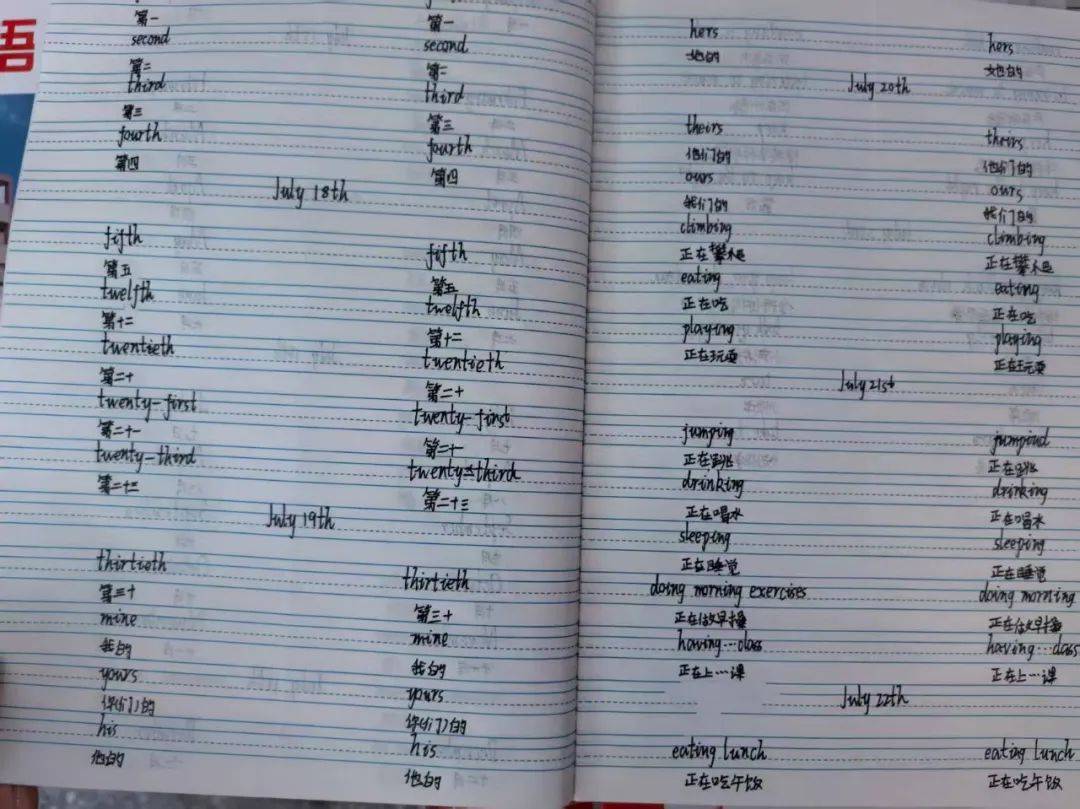 语
第一 第一
second second
第二 第二
third third
第三 第三
fourth fourth
第四 第四
July 18th
fifth fifth
第五 第五
twelfth twelfth
第十二 第十二
twentieth twentieth
第二十 第二十
twenty-first twenty-first
第二十一 第二十一
twenty-third twenty-third
第二十三 第二十三
July 19th
thirtieth thirtieth
第三十 第三十
mine mine
我的 我的
yours yours
你(们)的 你(们)的
his his
他的 他的
hers hers
她的 她的
July 20th
theirs theirs
他们的 他们的
ours ours
我们的 我们的
climbing climbing
正在攀爬 正在攀爬
eating eating
正在吃 正在吃
playing playing
正在玩耍 正在玩耍
July 21st
jumping
正在跳 正在跳
drinking drinking
正在喝水 正在喝水
sleeping sleeping
正在睡觉 正在睡觉
doing morning exercises doing morning
正在做早操 正在做早操
having…class having…class
正在上…课 正在上…课
July 22th
eating lunch eating lunch
正在吃午饭 正在吃午饭